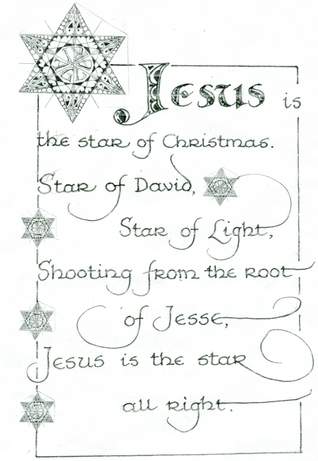 Jesus is
the star of Christmas.
Star of David,
Star of Light,
Shooting from the root
of Jesse,
Jesus is the star
all right.